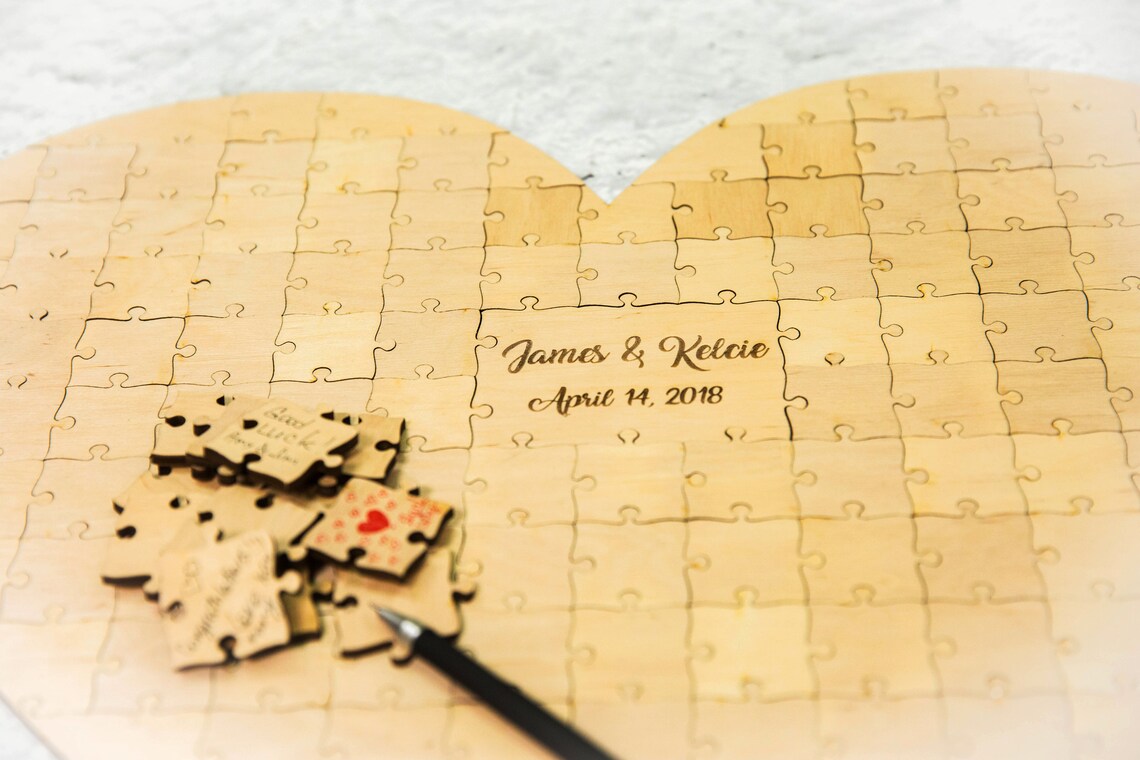 James & Kelcie
April 14, 2018
Good
Luck!
Congratulations